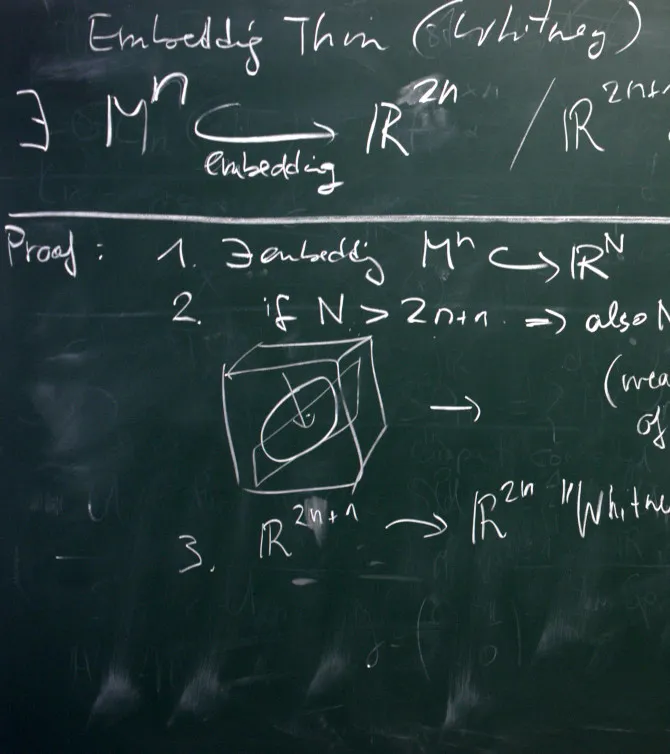 Embeddig Thm (Whitney)
∃ Mⁿ ↪ ℝ²ⁿ / ℝ²ⁿ⁺¹
embedding
Proof: 1. ∃ embeddig Mⁿ ↪ ℝᴺ
2. if N > 2n+1 ⇒ also N
→ (wea
of
3. ℝ²ⁿ⁺¹ → ℝ²ⁿ "Whitne